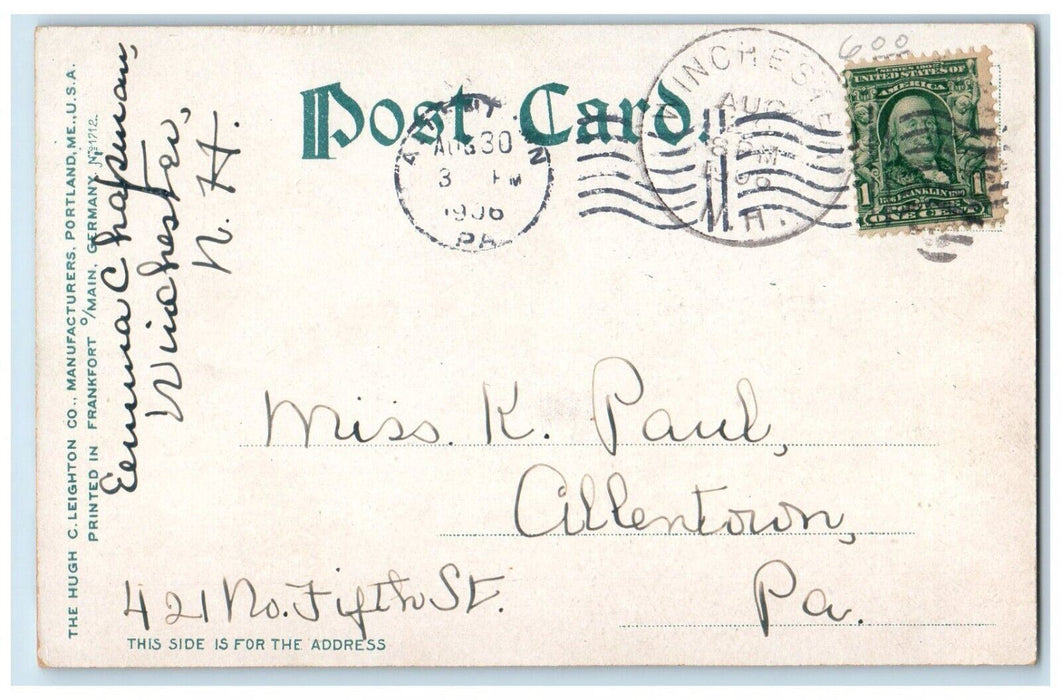 Post Card.
600
WINCHESTER
AUG
8 PM
N.H.
AUG 30
3 PM
1906
PA
SERIES 1902
UNITED STATES OF
AMERICA
1 FRANKLIN 1
ONE CENT
THE HUGH C. LEIGHTON CO., MANUFACTURERS, PORTLAND, ME., U.S.A.
PRINTED IN FRANKFORT o/MAIN, GERMANY. No 1712.
Emma Chapman,
Winchester,
N. H.
Miss. K. Paul,
Allentown,
421 No. Fifth St. Pa.
THIS SIDE IS FOR THE ADDRESS